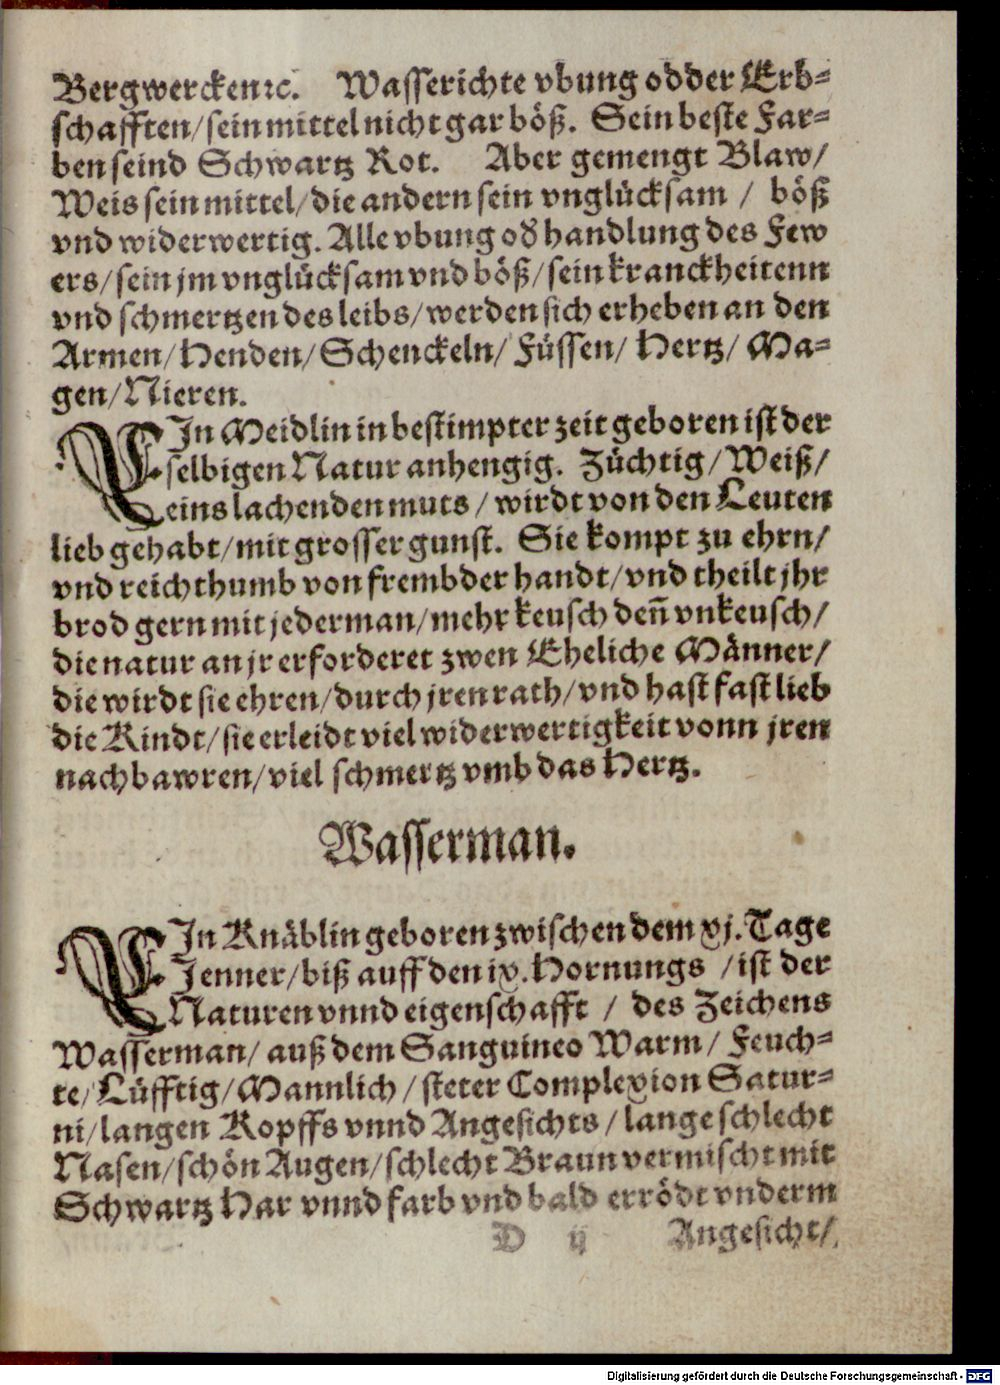 Bergwercken ꝛc. Wasserichte vbung odder Erb-
schafften/ sein mittel nicht gar böß. Sein beste Far-
ben seind Schwartz Rot. Aber gemengt Blaw/
Weis sein mittel/ die andern sein vnglücksam / böß
vnd widerwertig. Alle vbung od̕ handlung des Few
ers/ sein jm vnglücksam vnd böß/ sein kranckheitenn
vnd schmertzen des leibs/ werden sich erheben an den
Armen/ Henden/ Schenckeln/ Füssen/ Hertz/ Ma-
gen/ Nieren.
EIn Meidlin in bestimpter zeit geboren ist der
selbigen Natur anhengig. Züchtig/ Weiß/
eins lachenden muts / wirdt von den Leuten
lieb gehabt/ mit grosser gunst. Sie kompt zu ehrn/
vnd reichthumb von frembder handt/ vnd theilt jhr
brod gern mit jederman/ mehr keusch deñ vnkeusch/
die natur an jr erforderet zwen Eheliche Männer/
die wirdt sie ehren/ durch jren rath/ vnd hast fast lieb
die Kindt/ sie erleidt viel widerwertigkeit vonn jren
nachbawren/ viel schmertz vmb das Hertz.
Wasserman.
EIn Knäblin geboren zwischen dem xj. Tage
Jenner/ biß auff den ix. Hornungs / ist der
Naturen vnnd eigenschafft / des Zeichens
Wasserman/ auß dem Sanguineo Warm/ Feuch-
te/ Lüfftig/ Mannlich / steter Complexion Satur-
ni/ langen Kopffs vnnd Angesichts / lange schlecht
Nasen/ schön Augen/ schlecht Braun vermischt mit
Schwartz Har vnnd farb vnd bald errödt vnderm
D ij Angesicht/
Digitalisierung gefördert durch die Deutsche Forschungsgemeinschaft - DFG